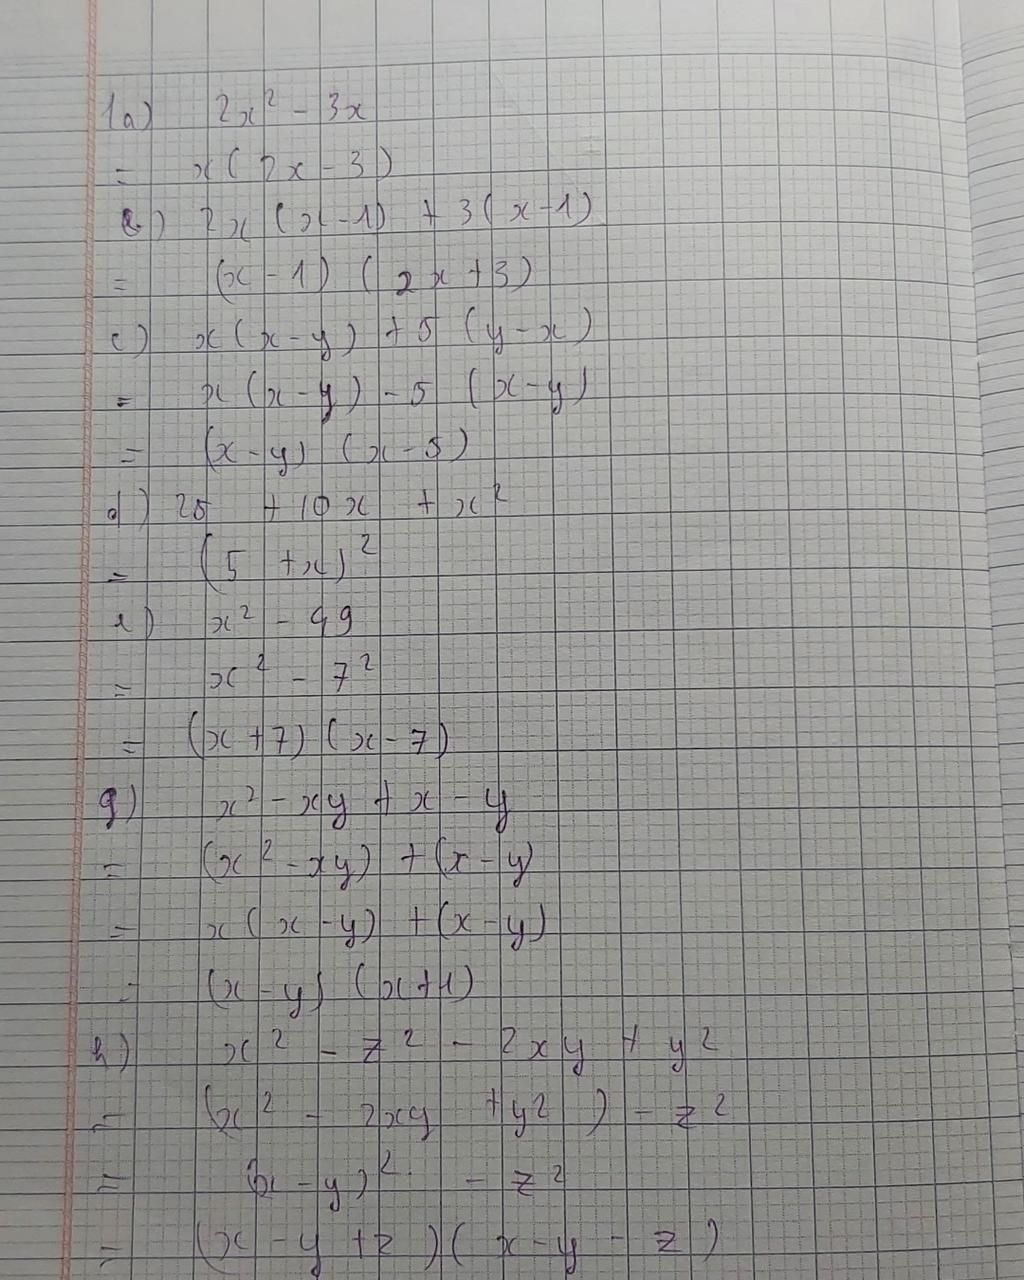 1a) 2x² - 3x
= x(2x - 3)
b) 2x(x-1) + 3(x-1)
= (x-1)(2x+3)
c) x(x-y) + 5(y-x)
= x(x-y) - 5(x-y)
= (x-y)(x-5)
d) 25 + 10x + x²
= (5 + x)²
e) x² - 49
= x² - 7²
= (x+7)(x-7)
g) x² - xy + x - y
= (x² - xy) + (x - y)
= x(x-y) + (x-y)
= (x-y)(x+1)
h) x² - z² - 2xy + y²
= (x² - 2xy + y²) - z²
= (x-y)² - z²
= (x - y + z)(x - y - z)